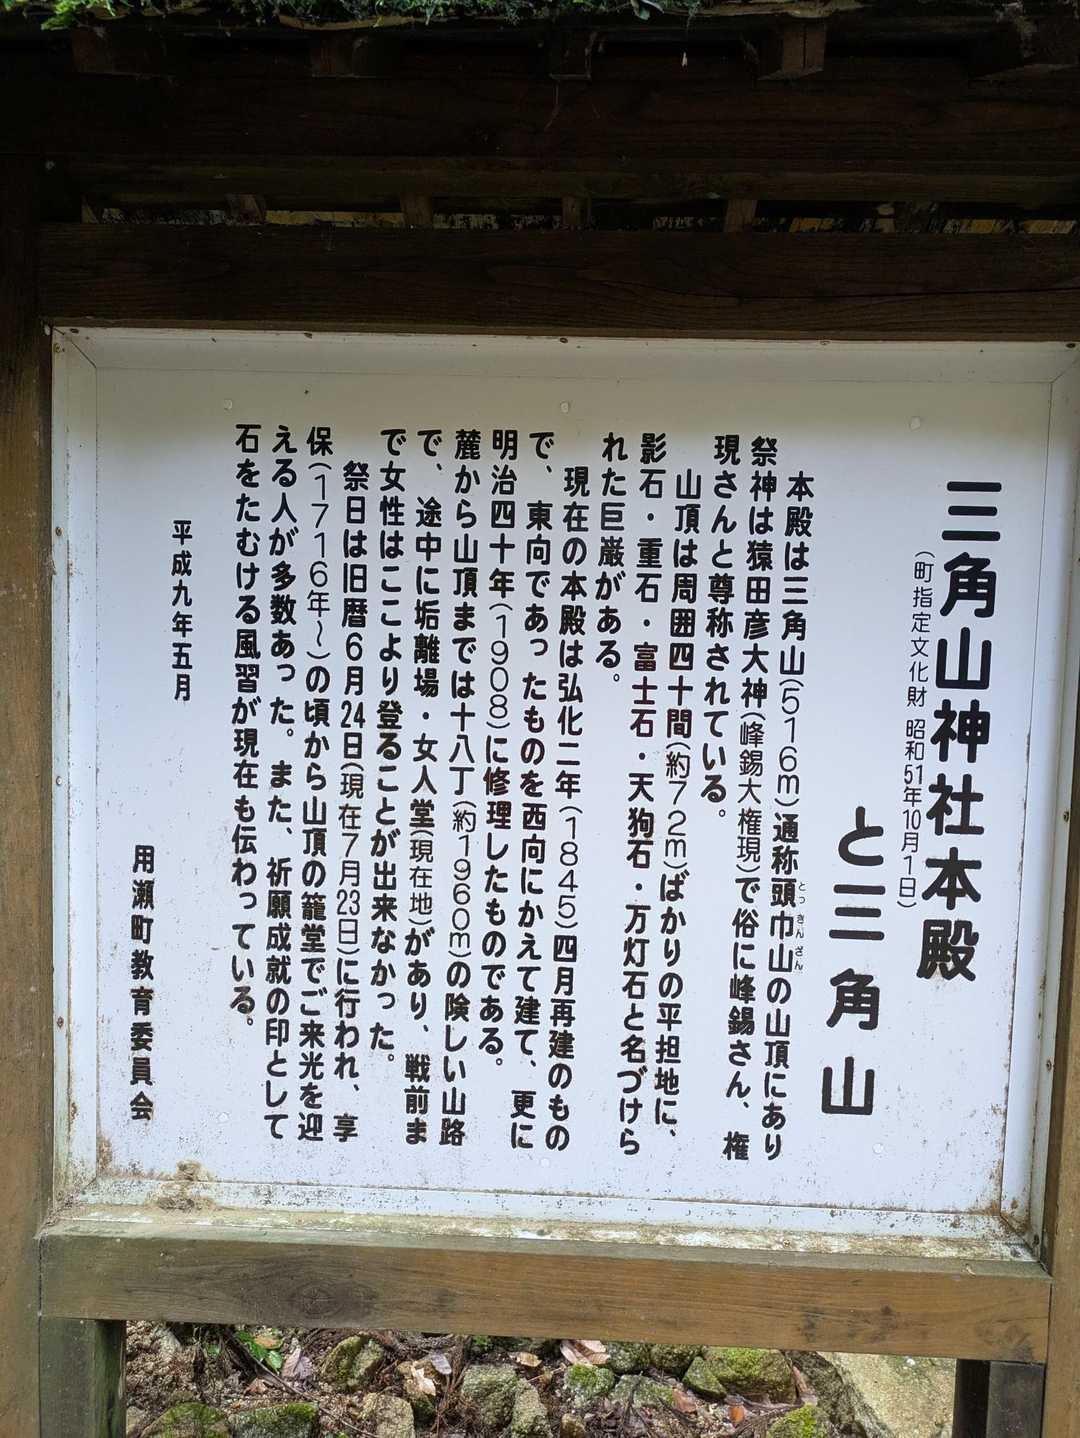 三角山神社本殿
(町指定文化財 昭和51年10月1日)
と三角山
本殿は三角山(516m)通称頭巾山の山頂にあり
とっきんざん
祭神は猿田彦大神(峰錫大権現)で俗に峰錫さん、権
現さんと尊称されている。
山頂は周囲四十間(約72m)ばかりの平担地に、
影石・重石・富士石・天狗石・万灯石と名づけら
れた巨巌がある。
現在の本殿は弘化二年(1845)四月再建のもの
で、東向であったものを西向にかえて建て、更に
明治四十年(1908)に修理したものである。
麓から山頂までは十八丁(約1960m)の険しい山路
で、途中に垢離場・女人堂(現在地)があり、戦前ま
で女性はここより登ることが出来なかった。
祭日は旧暦6月24日(現在7月23日)に行われ、享
保(1716年~)の頃から山頂の籠堂でご来光を迎
える人が多数あった。また、祈願成就の印として
石をたむける風習が現在も伝わっている。
平成九年五月
用瀬町教育委員会